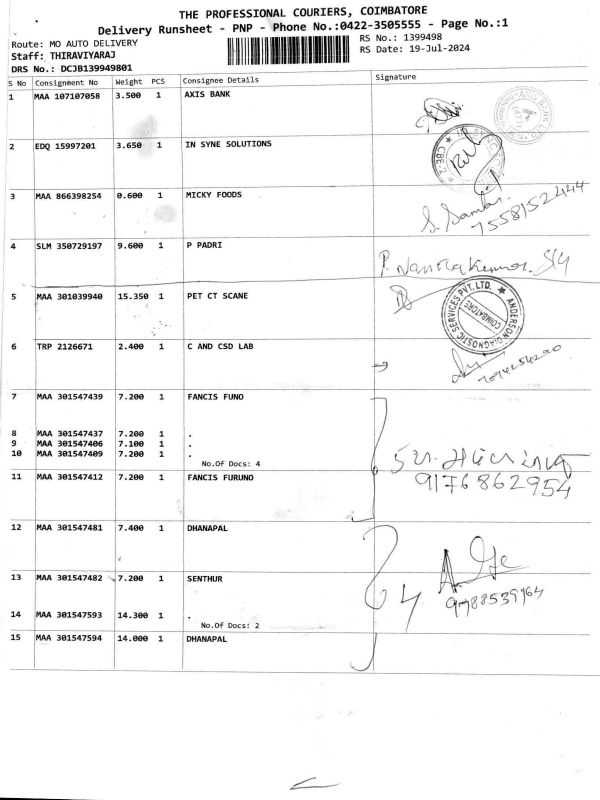 THE PROFESSIONAL COURIERS, COIMBATORE
Delivery Runsheet - PNP - Phone No:0422-3505555 - Page No.:1
Route: MO AUTO DELIVERY
RS No.: 1399498
Staff: THIRAVIYARAJ
RS Date: 19-Jul-2024
DRS No.: DCJB139949801
S No Consignment No Weight PCS Consignee Details Signature
1 MAA 107107058 3.500 1 AXIS BANK
2 EDQ 15997201 3.650 1 IN SYNE SOLUTIONS
3 MAA 866398254 0.600 1 MICKY FOODS
7558152444
4 SLM 350729197 9.600 1 P PADRI
5 MAA 301039940 15.350 1 PET CT SCANE
ANDERSON DIAGNOSTIC SERVICES PVT.LTD.
COIMBATORE
6 TRP 2126671 2.400 1 C AND CSD LAB
7 MAA 301547439 7.200 1 FANCIS FUNO
8 MAA 301547437 7.200 1 .
9 MAA 301547406 7.100 1 .
10 MAA 301547409 7.200 1 .
No.Of Docs: 4
11 MAA 301547412 7.200 1 FANCIS FURUNO
9176862954
12 MAA 301547481 7.400 1 DHANAPAL
13 MAA 301547482 7.200 1 SENTHUR
14 MAA 301547593 14.300 1 .
No.Of Docs: 2
15 MAA 301547594 14.000 1 DHANAPAL